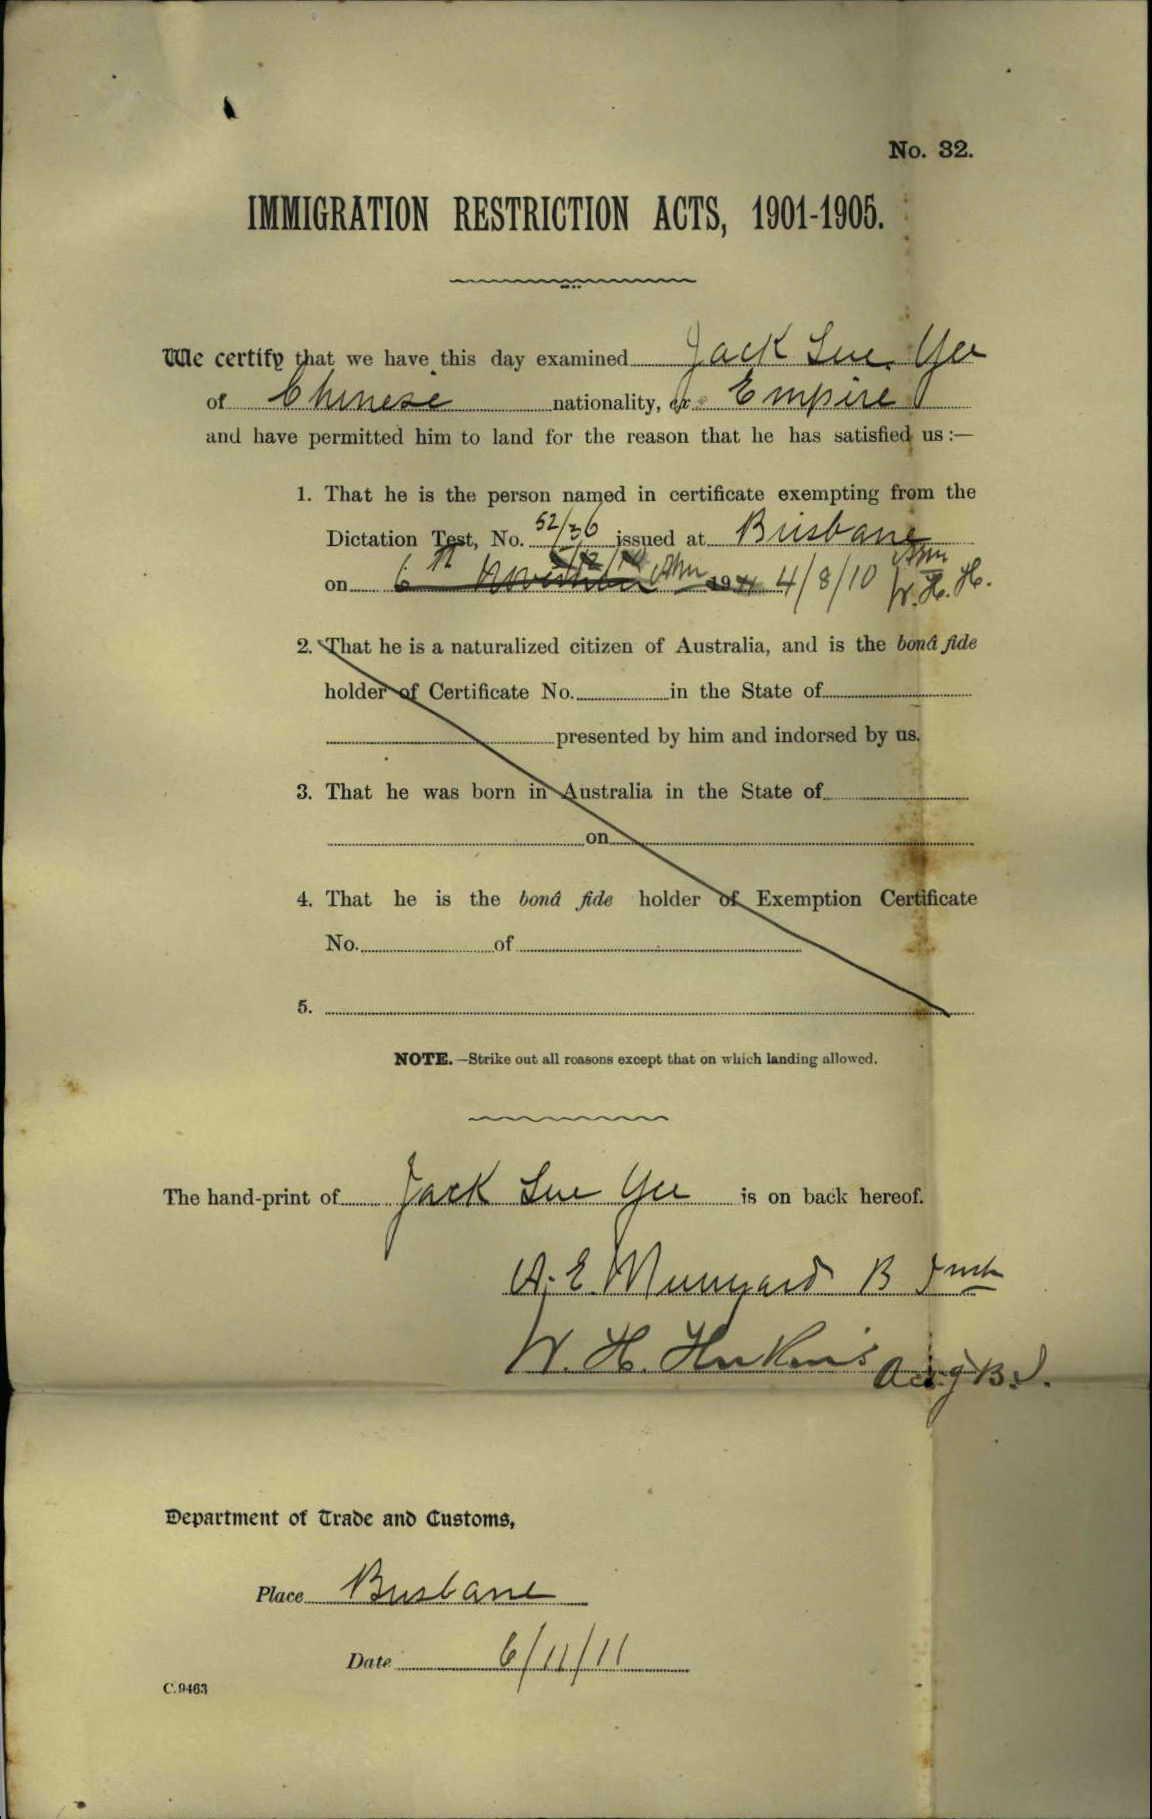 No. 32.
IMMIGRATION RESTRICTION ACTS, 1901-1905.
We certify that we have this day examined Jack Sue Yee
of Chinese nationality, ex Empire
and have permitted him to land for the reason that he has satisfied us :—
1. That he is the person named in certificate exempting from the
Dictation Test, No. 52/36 issued at Brisbane
on 6th November 19 4/8/10 W. H. H.
2. That he is a naturalized citizen of Australia, and is the bonâ fide
holder of Certificate No. in the State of
presented by him and indorsed by us.
3. That he was born in Australia in the State of
on
4. That he is the bonâ fide holder of Exemption Certificate
No. of
5.
NOTE.—Strike out all reasons except that on which landing allowed.
The hand-print of Jack Sue Yee is on back hereof.
A. E. Munyard B
W. H. Actg B. I.
Department of Trade and Customs,
Place Brisbane
Date 6/11/11
C.9463